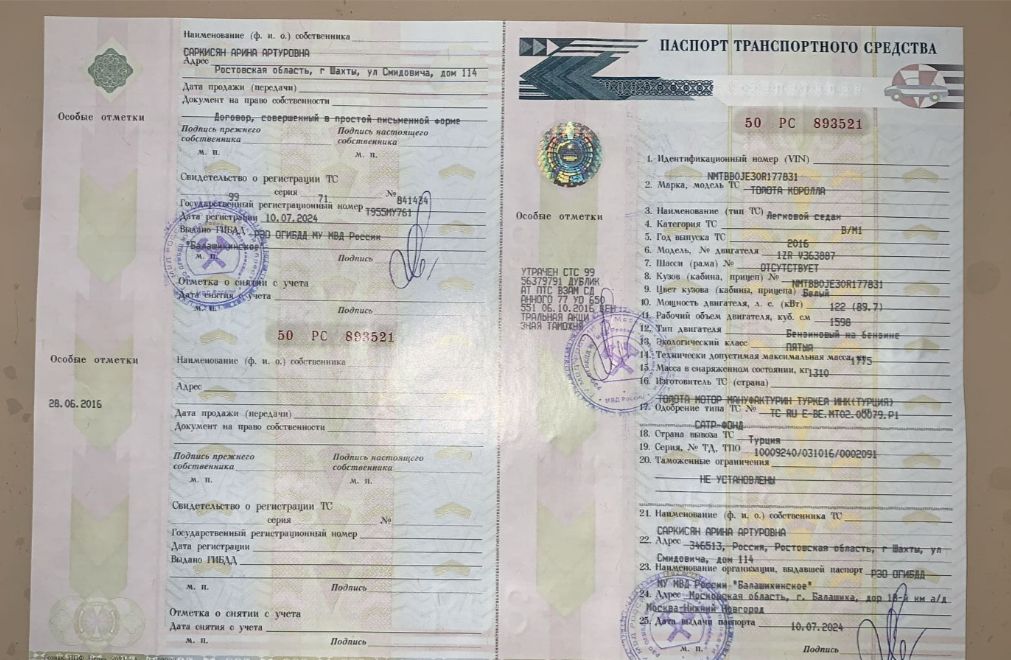 Наименование (ф. и. о.) собственника
САРКИСЯН АРИНА АРТУРОВНА
Адрес
Ростовская область, г Шахты, ул Смидовича, дом 114
Дата продажи (передачи)
Документ на право собственности
Договор, совершенный в простой письменной форме
Подпись прежнего собственника
Подпись настоящего собственника
м. п. м. п.
Свидетельство о регистрации ТС
99 серия 71 № 841434
Государственный регистрационный номер Т955МУ761
Дата регистрации 10.07.2024
Выдано ГИБДД РЭО ОГИБДД МУ МВД России
"Балашихинское"
м. п. Подпись
Отметка о снятии с учета
Дата снятия с учета
м. п. Подпись
Особые отметки
50 РС 893521
Наименование (ф. и. о.) собственника
Адрес
Дата продажи (передачи)
Документ на право собственности
Подпись прежнего собственника
Подпись настоящего собственника
м. п. м. п.
Свидетельство о регистрации ТС
серия №
Государственный регистрационный номер
Дата регистрации
Выдано ГИБДД
м. п. Подпись
Отметка о снятии с учета
Дата снятия с учета
м. п. Подпись
Особые отметки
28.06.2016
ПАСПОРТ ТРАНСПОРТНОГО СРЕДСТВА
50 РС 893521
Особые отметки
УТРАЧЕН СТС 99
56379791 ДУБЛИК
АТ ПТС ВЗАМ СД
АННОГО 77 УО 650
551 06.10.2016 ЦЕН
ТРАЛЬНАЯ АКЦИ
ЗНАЯ ТАМОЖНЯ
1. Идентификационный номер (VIN)
NMTBB0JE30R177831
2. Марка, модель ТС ТОЙОТА КОРОЛЛА
3. Наименование (тип ТС) Легковой седан
4. Категория ТС В/М1
5. Год выпуска ТС 2016
6. Модель, № двигателя 1ZR V363887
7. Шасси (рама) № ОТСУТСТВУЕТ
8. Кузов (кабина, прицеп) № NMTBB0JE30R177831
9. Цвет кузова (кабины, прицепа) Белый
10. Мощность двигателя, л. с. (кВт) 122 (89.7)
11. Рабочий объем двигателя, куб. см 1598
12. Тип двигателя Бензиновый на бензине
13. Экологический класс ПЯТЫЙ
14. Технически допустимая максимальная масса, кг 1775
15. Масса в снаряженном состоянии, кг 1310
16. Изготовитель ТС (страна)
ТОЙОТА МОТОР МАНУФАКТУРИН ТУРКЕЙ ИНК(ТУРЦИЯ)
17. Одобрение типа ТС № ТС RU E-BE.MT02.00079.P1
САТР-ФОНД
18. Страна вывоза ТС Турция
19. Серия, № ТД, ТПО 10009240/031016/0002091
20. Таможенные ограничения
НЕ УСТАНОВЛЕНЫ
21. Наименование (ф. и. о.) собственника ТС
САРКИСЯН АРИНА АРТУРОВНА
22. Адрес 346513, Россия, Ростовская область, г Шахты, ул
Смидовича, дом 114
23. Наименование организации, выдавшей паспорт РЭО ОГИБДД
МУ МВД России "Балашихинское"
24. Адрес Московская область, г. Балашиха, дор 18-й км а/д
Москва-Нижний Новгород
25. Дата выдачи паспорта 10.07.2024
м. п. Подпись